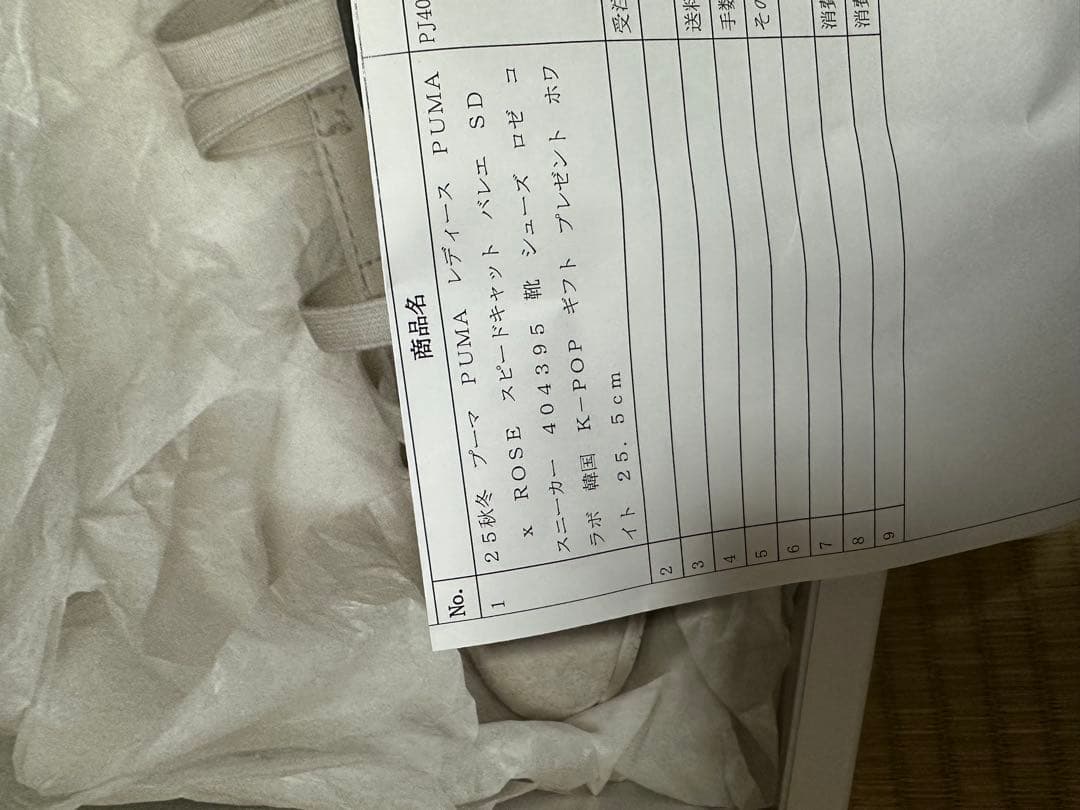 No.
商品名
1
25秋冬 プーマ PUMA レディース PUMA
x ROSE スピードキャット バレエ SD
スニーカー 404395 靴 シューズ ロゼ コ
ラボ 韓国 K-POP ギフト プレゼント ホワ
イト 25.5cm
PJ40
受注
2
3
送料
4
手数
5
その
6
7
消費
8
消費
9